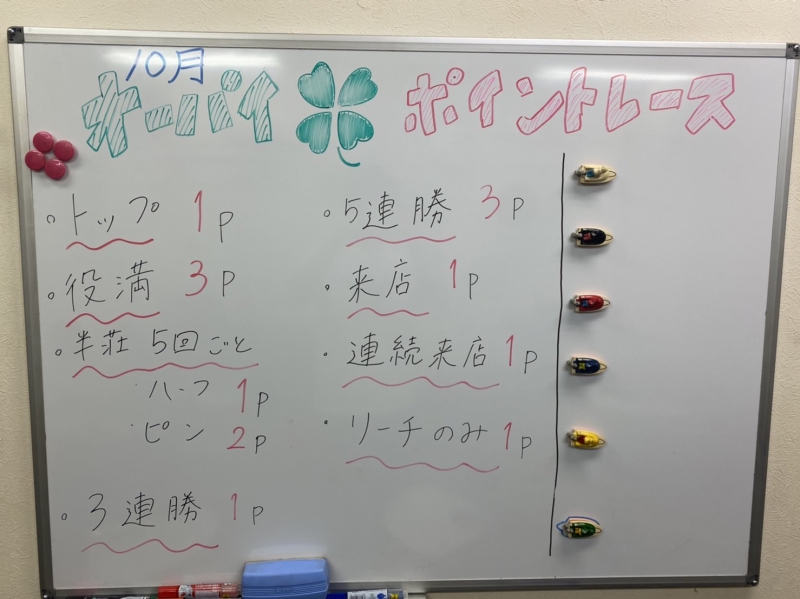 10月
オーパイ ポイントレース
・トップ 1P
・役満 3P
・半荘 5回ごと
・ハーフ 1P
・ピン 2P
・3連勝 1P
・5連勝 3P
・来店 1P
・連続来店 1P
・リーチのみ 1P